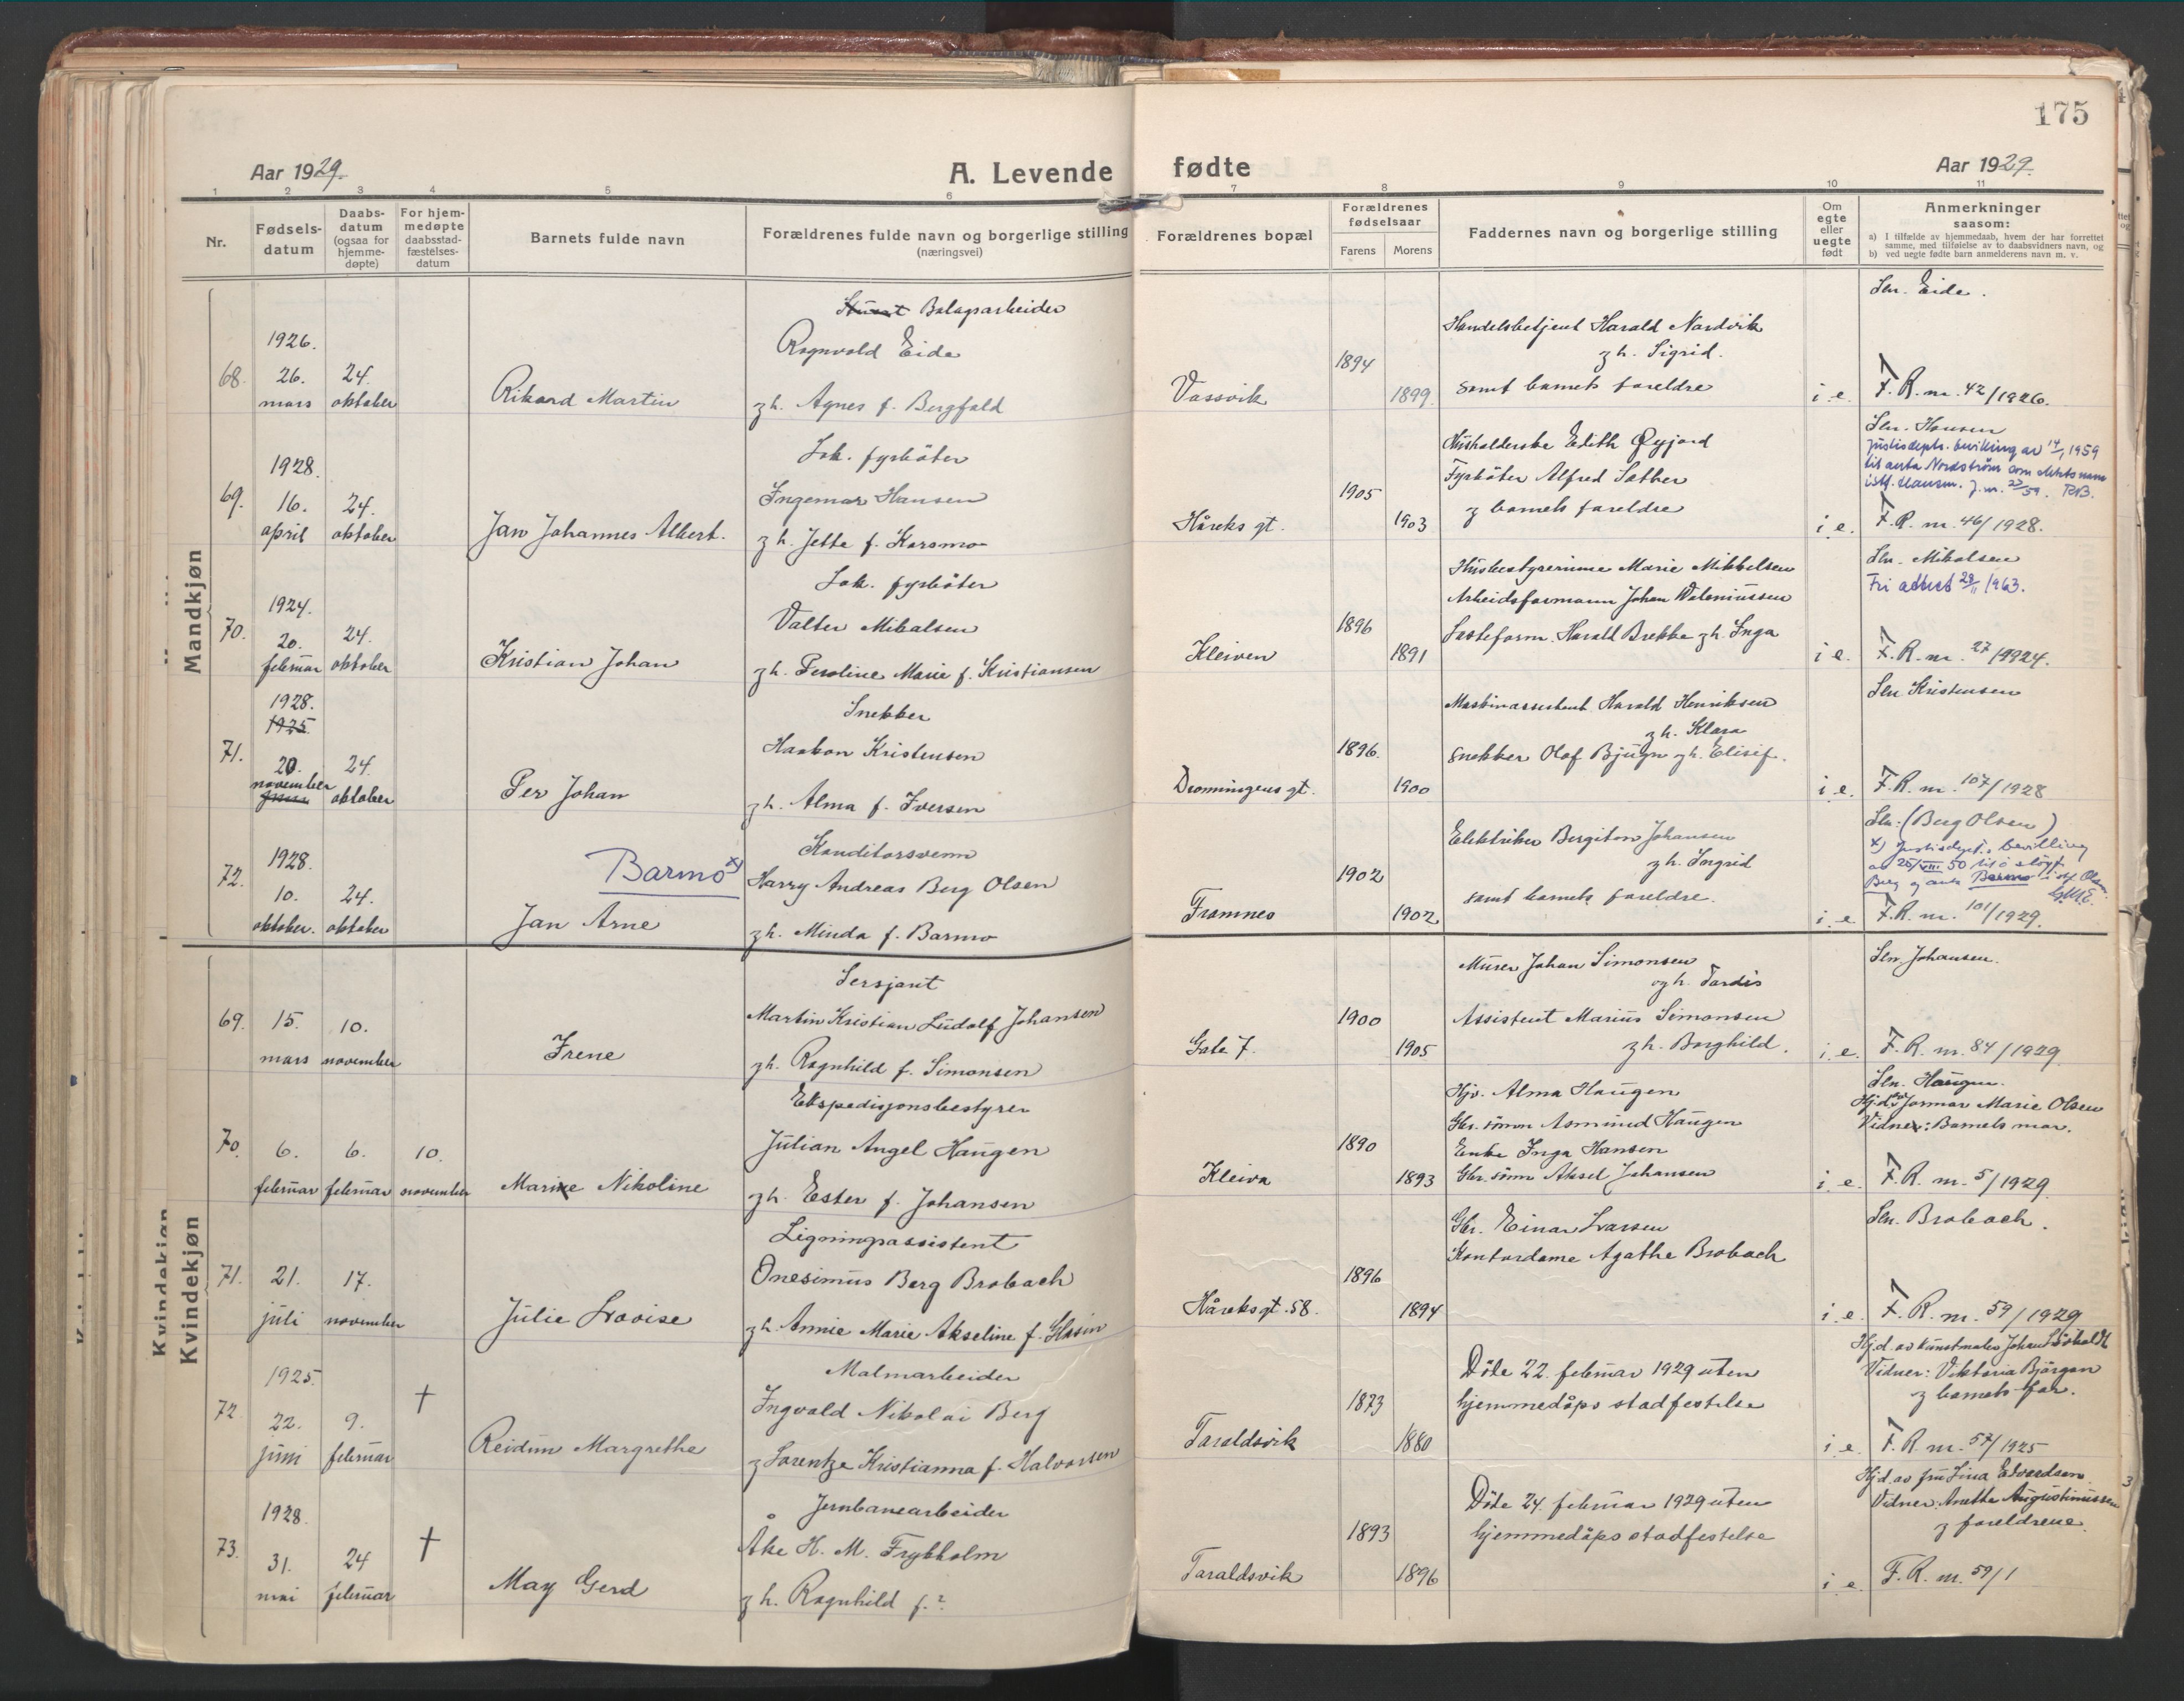 175
Aar 1929.
A. Levende fødte
Aar 1929.
1 2 3 4 5 6 7 8 9 10 11
Nr.
Fødsels-
datum
Daabs-
datum
(ogsaa for
hjemme-
døpte)
For hjem-
medøpte
daabsstad-
fæstelses-
datum
Barnets fulde navn
Forældrenes fulde navn og borgerlige stilling
(næringsvei)
Forældrenes bopæl
Forældrenes
fødselsaar
Farens Morens
Faddernes navn og borgerlige stilling
Om
egte
eller
uegte
født
Anmerkninger
saasom:
a) I tilfælde av hjemmedaab, hvem der har forrettet
samme, med tilføielse av to daabsvidners navn, og
b) ved uegte fødte barn anmelderens navn m. v.
Mandkjøn
68.
1926.
26.
mars
24.
oktober
Rikard Martin
Bolagsarbeider
Ragnvald Eide
g h. Agnes f. Bergfald
Vassvik
1894
1899.
Handelsbetjent Harald Nordvik
g h. Sigrid.
samt barnets foreldre
i e.
Sln. Eide.
F. R. nr. 42/1926.
69.
1928.
16.
april
24.
oktober
Jan Johannes Albert.
Lok. fyrbøter
Ingemar Hansen
g h. Jette f. Korsmo
Håreks gt.
1905
1903
Husholderske Edith Øyjord
Fyrbøter Alfred Sæther
g barnets foreldre
i e.
Sln. Hansen
Justisdepts. bevilling av 14/1 1959
til anta Nordstrøm som slektsnavn
istf. Hansen. J.nr. 27/59. RB.
F. R. nr. 46/1928.
70.
1924.
20.
februar
24.
oktober
Kristian Johan
Lok. fyrbøter
Valter Mikalsen
g h. Peroline Marie f. Kristiansen
Kleiven
1896
1891
Husbestyrerinne Marie Mikkelsen
Arbeidsformann Johan Daleniussen
Lasteform. Harald Brekke g h. Inga
i e.
Sln. Mikalsen
Fri attest 29/11 1963.
F. R. nr. 27/1924.
71.
1928.
1925.
20.
november
24.
oktober
Per Johan
Snekker
Haakon Kristensen
g h. Alma f. Iversen
Dronningens gt.
1896.
1900
Maskinassistent Harald Henriksen
g h. Klara
Snekker Olaf Bjugn g h. Elisif.
i e.
Sln Kristensen
F. R. nr. 107/1928
72.
1928.
10.
oktober.
24.
oktober
Barmo x)
Jan Arne
Konditorsvenn
Harry Andreas Berg Olsen
g h. Minda f. Barmo
Framnes
1902
1902
Elektriker Bergiton Johansen
g h. Ingrid
samt barnets foreldre.
i e
Sln: (Berg Olsen)
x) Justisdept.s bevilling
av 25/VIII 50 til å sløyfe
Berg og anta Barmo istf Olsen.
F. R. nr. 101/1929.
Kvindekjøn
Kvindekjøn
69.
15.
mars
10.
november
Irene
Sersjant
Martin Kristian Ludolf Johansen
g h. Ragnhild f. Simonsen
Gate 7.
1900
1905
Murer Johan Simonsen
og h. Tordis
Assistent Marius Simonsen
g h. Borghild.
i. e.
Sln. Johansen.
F. R. nr. 84/1929
70.
6.
februar
6.
februar
10.
november
Marine Nikoline
Ekspedisjonsbestyrer
Julian Angel Haugen
g h. Ester f. Johansen
Kleiva
1890
1893
Hjv. Alma Haugen
Gbr. sønn Asmund Haugen
Enke Inga Hansen
Gbr. sønn Aksel Johansen
i e.
Sln. Haugen.
Hjd. av Jormor Marie Olsen
Vidner: Barnets mor.
F. R. nr. 5/1929
71.
21.
juli
17.
november
Julie Lovise
Ligningsassistent
Onesimus Berg Brobach
g h. Annie Marie Akseline f. Hasin
Håreksgt. 58.
1896
1894
Gbr. Einar Larsen
Kontordame Agathe Brobach
i e.
Sln. Brobach.
F. R. nr. 59/1929
72.
1925.
22.
juni
9.
februar
†
Reidun Margrethe
Malmarbeider
Ingvald Nikolai Berg
g Lorentze Kristianna f. Halvorsen
Taraldsvik
1873
1880
Døde 22. februar 1929 uten
hjemmedåps stadfestelse
i e.
Hjd. av kunstmaler Johan
Vidner: Viktoria Bjørgan
g barnets far.
F. R. nr. 57/1925
73.
1928.
31.
mai
24
februar
†
May Gerd
Jernbanearbeider
Åke H. M. Frykholm
g h. Ragnhild f. ?
Taraldsvik
1893
1896
Døde 24. februar 1929 uten
hjemmedåps stadfestelse
i e.
Hjd. av fru Lina Edvardsen
Vidner: Anetta Augustinussen
g foreldrene.
F. R. nr. 59/1